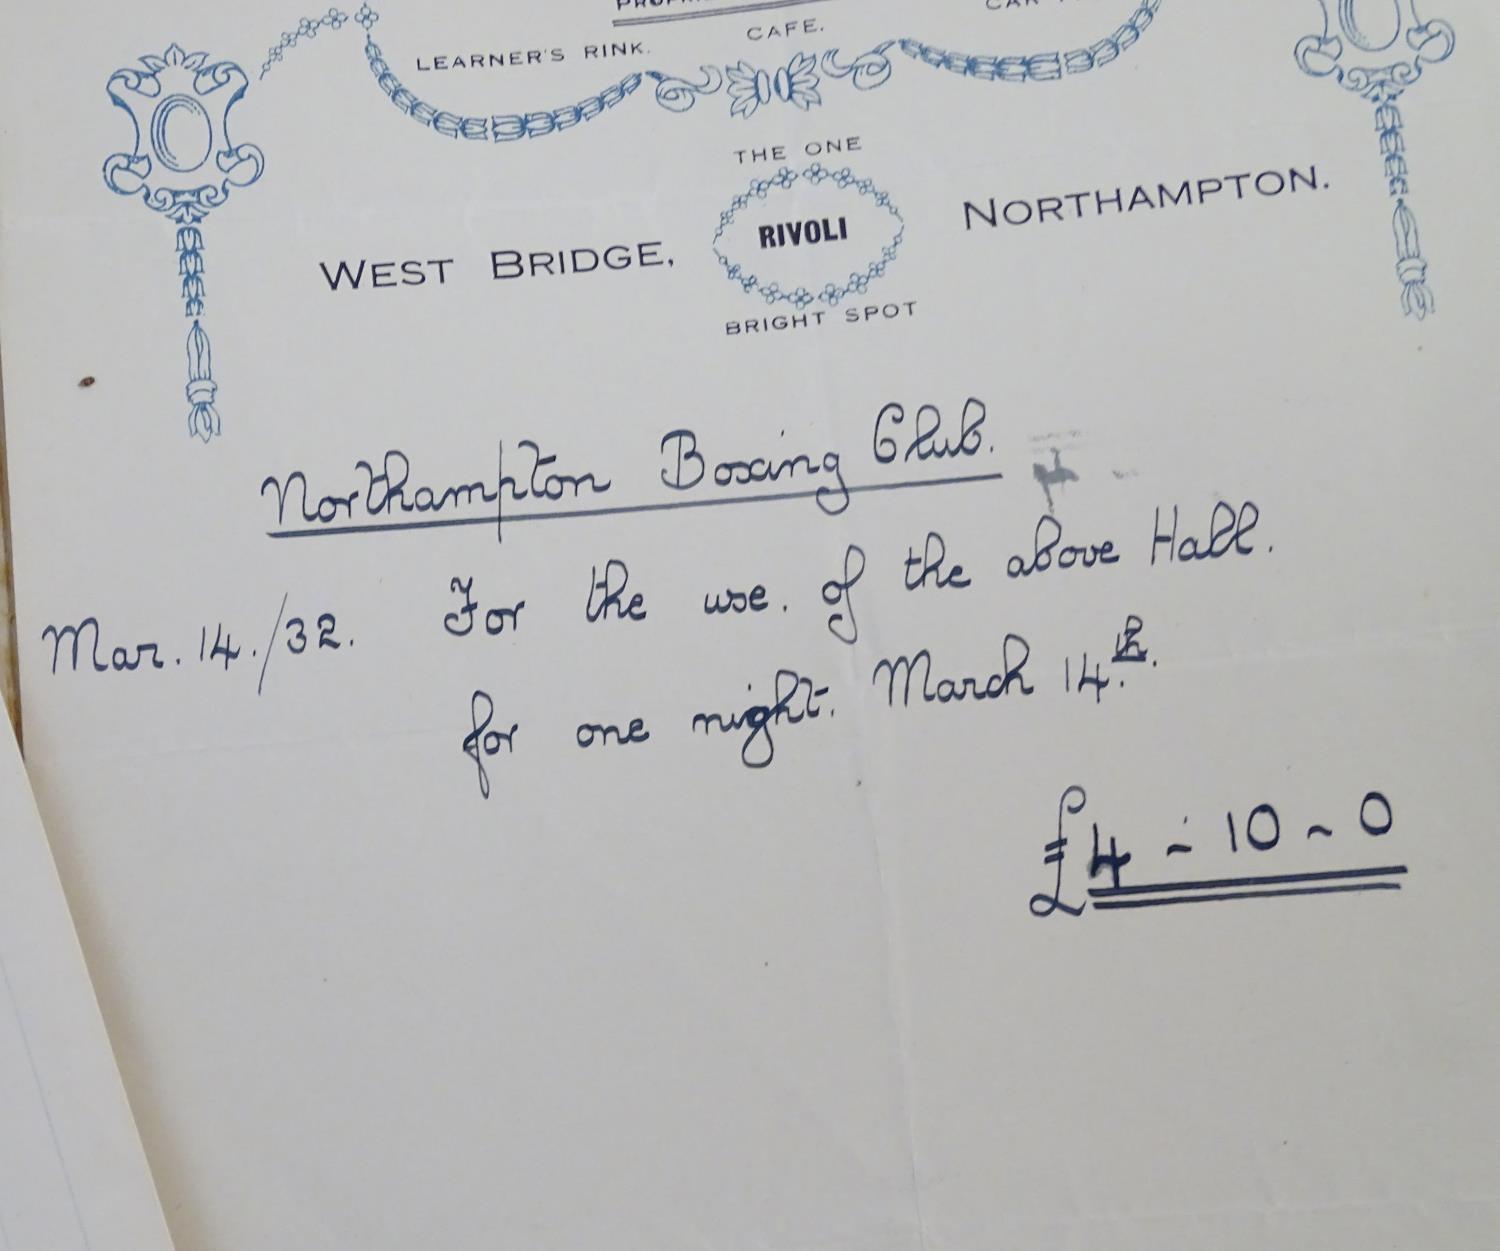 LEARNER'S RINK.
CAFE.
THE ONE
WEST BRIDGE, RIVOLI NORTHAMPTON.
BRIGHT SPOT
Northampton Boxing Club.
Mar. 14./32. For the use. of the above Hall.
for one night. March 14.th.
£4 - 10 - 0